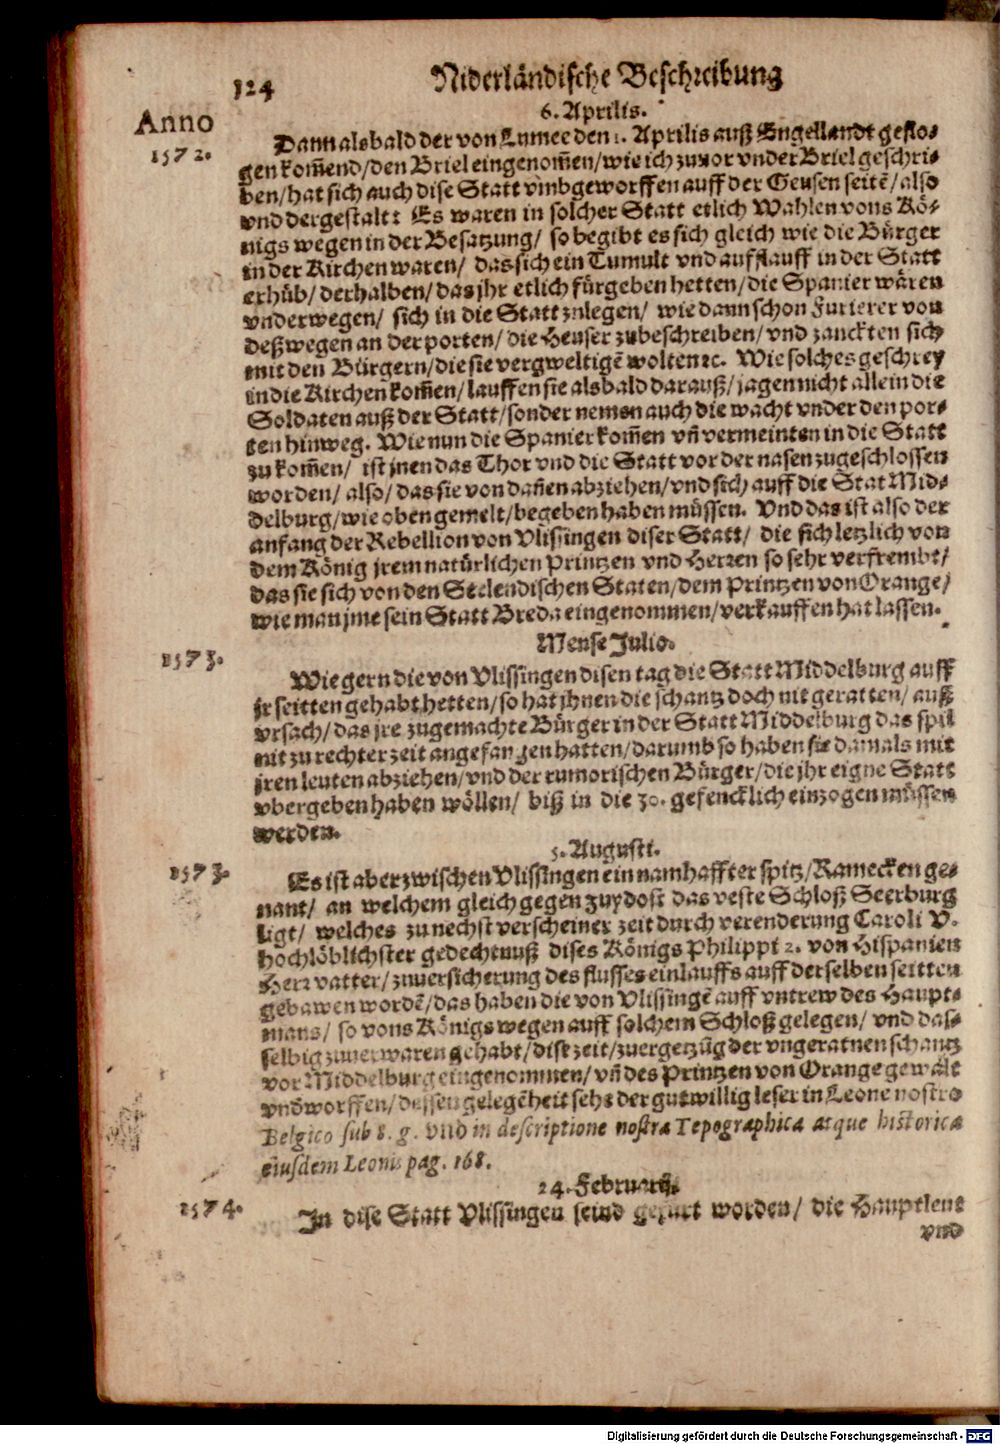 124 Niderländische Beschreibung
6. Aprilis.
Anno
1572.
Dann alsbald der von Lumee den 1. Aprilis auß Engellandt geflo-
gen kom̃end/den Briel eingenom̃en/wie ich zuuor vnder Briel geschri-
ben/hat sich auch dise Statt vmbgeworffen auff der Geusen seitẽ/also
vnd dergestalt: Es waren in solcher Statt etlich Wahlen vons Kö-
nigs wegen in der Besatzung/ so begibt es sich gleich wie die Bürger
in der Kirchen waren/ das sich ein Tumult vnd aufflauff in der Statt
erhüb/derhalben/das jhr etlich fürgeben hetten/die Spanier wären
vnderwegen/ sich in die Statt zulegen/ wie dann schon Furierer von
deßwegen an der porten/die Heuser zubeschreiben/vnd zanckten sich
mit den Bürgern/die sie vergweltigẽ wolten ꝛc. Wie solches geschrey
in die Kirchen kom̃en/lauffen sie alsbald darauß/jagen nicht allein die
Soldaten auß der Statt/sonder nemen auch die wacht vnder den por-
ten hinweg. Wie nun die Spanier kom̃en vñ vermeinten in die Statt
zu kom̃en/ ist jnen das Thor vnd die Statt vor der nasen zugeschlossen
worden/ also/das sie von dañen abziehen/vnd sich auff die Stat Mid-
delburg/wie oben gemelt/begeben haben müssen. Vnd das ist also der
anfang der Rebellion von Vlissingen diser Statt/ die sich letzlich von
dem König jrem natürlichen Printzen vnd Herren so sehr verfrembt/
das sie sich von den Seelendischen Staten/dem Printzen von Orange/
wie man jme sein Statt Breda eingenommen/verkauffen hat lassen.
Mense Julio.
1573.
Wie gern die von Vlissingen disen tag die Statt Middelburg auff
jr seitten gehabt hetten/so hat jhnen die schantz doch nit geratten/ auß
vrsach/das jre zugemachte Bürger in der Statt Middelburg das spil
nit zu rechter zeit angefangen hatten/darumb so haben sie damals mit
jren leuten abziehen/vnd der rumorischen Bürger/die jhr eigne Statt
vbergeben haben wöllen/ biß in die 30. gefencklich einzogen müssen
werden.
5. Augusti.
1573.
Es ist aber zwischen Vlissingen ein namhaffter spitz/Ramecken ge-
nant/ an welchem gleich gegen Zuydost das veste Schloß Seerburg
ligt/ welches zu nechst verscheiner zeit durch verenderung Caroli V.
hochlöblichster gedechtnuß dises Königs Philippi 2. von Hispanien
Herr vatter/zuuersicherung des flusses einlauffs auff derselben seitten
gebawen wordẽ/das haben die von Vlissingẽ auff vntrew des Haupt-
mans/ so vons Königs wegen auff solchem Schloß gelegen/ vnd das-
selbig zuuerwaren gehabt/dise zeit/zuergetzũg der vngeratnen schantz
vor Middelburg eingenommen/vñ des Printzen von Orange gewalt
vndworffen/dessen gelegẽheit sehe der gutwillig leser in Leone nostro
Belgico sub 8. g. vnd in descriptione nostra Topographica atque historica
eiusdem Leonis pag. 168.
24. Februarij.
1574.
In dise Statt Vlissingen seind gefürt worden/ die Hauptleut
vnd
Digitalisierung gefördert durch die Deutsche Forschungsgemeinschaft - DFG